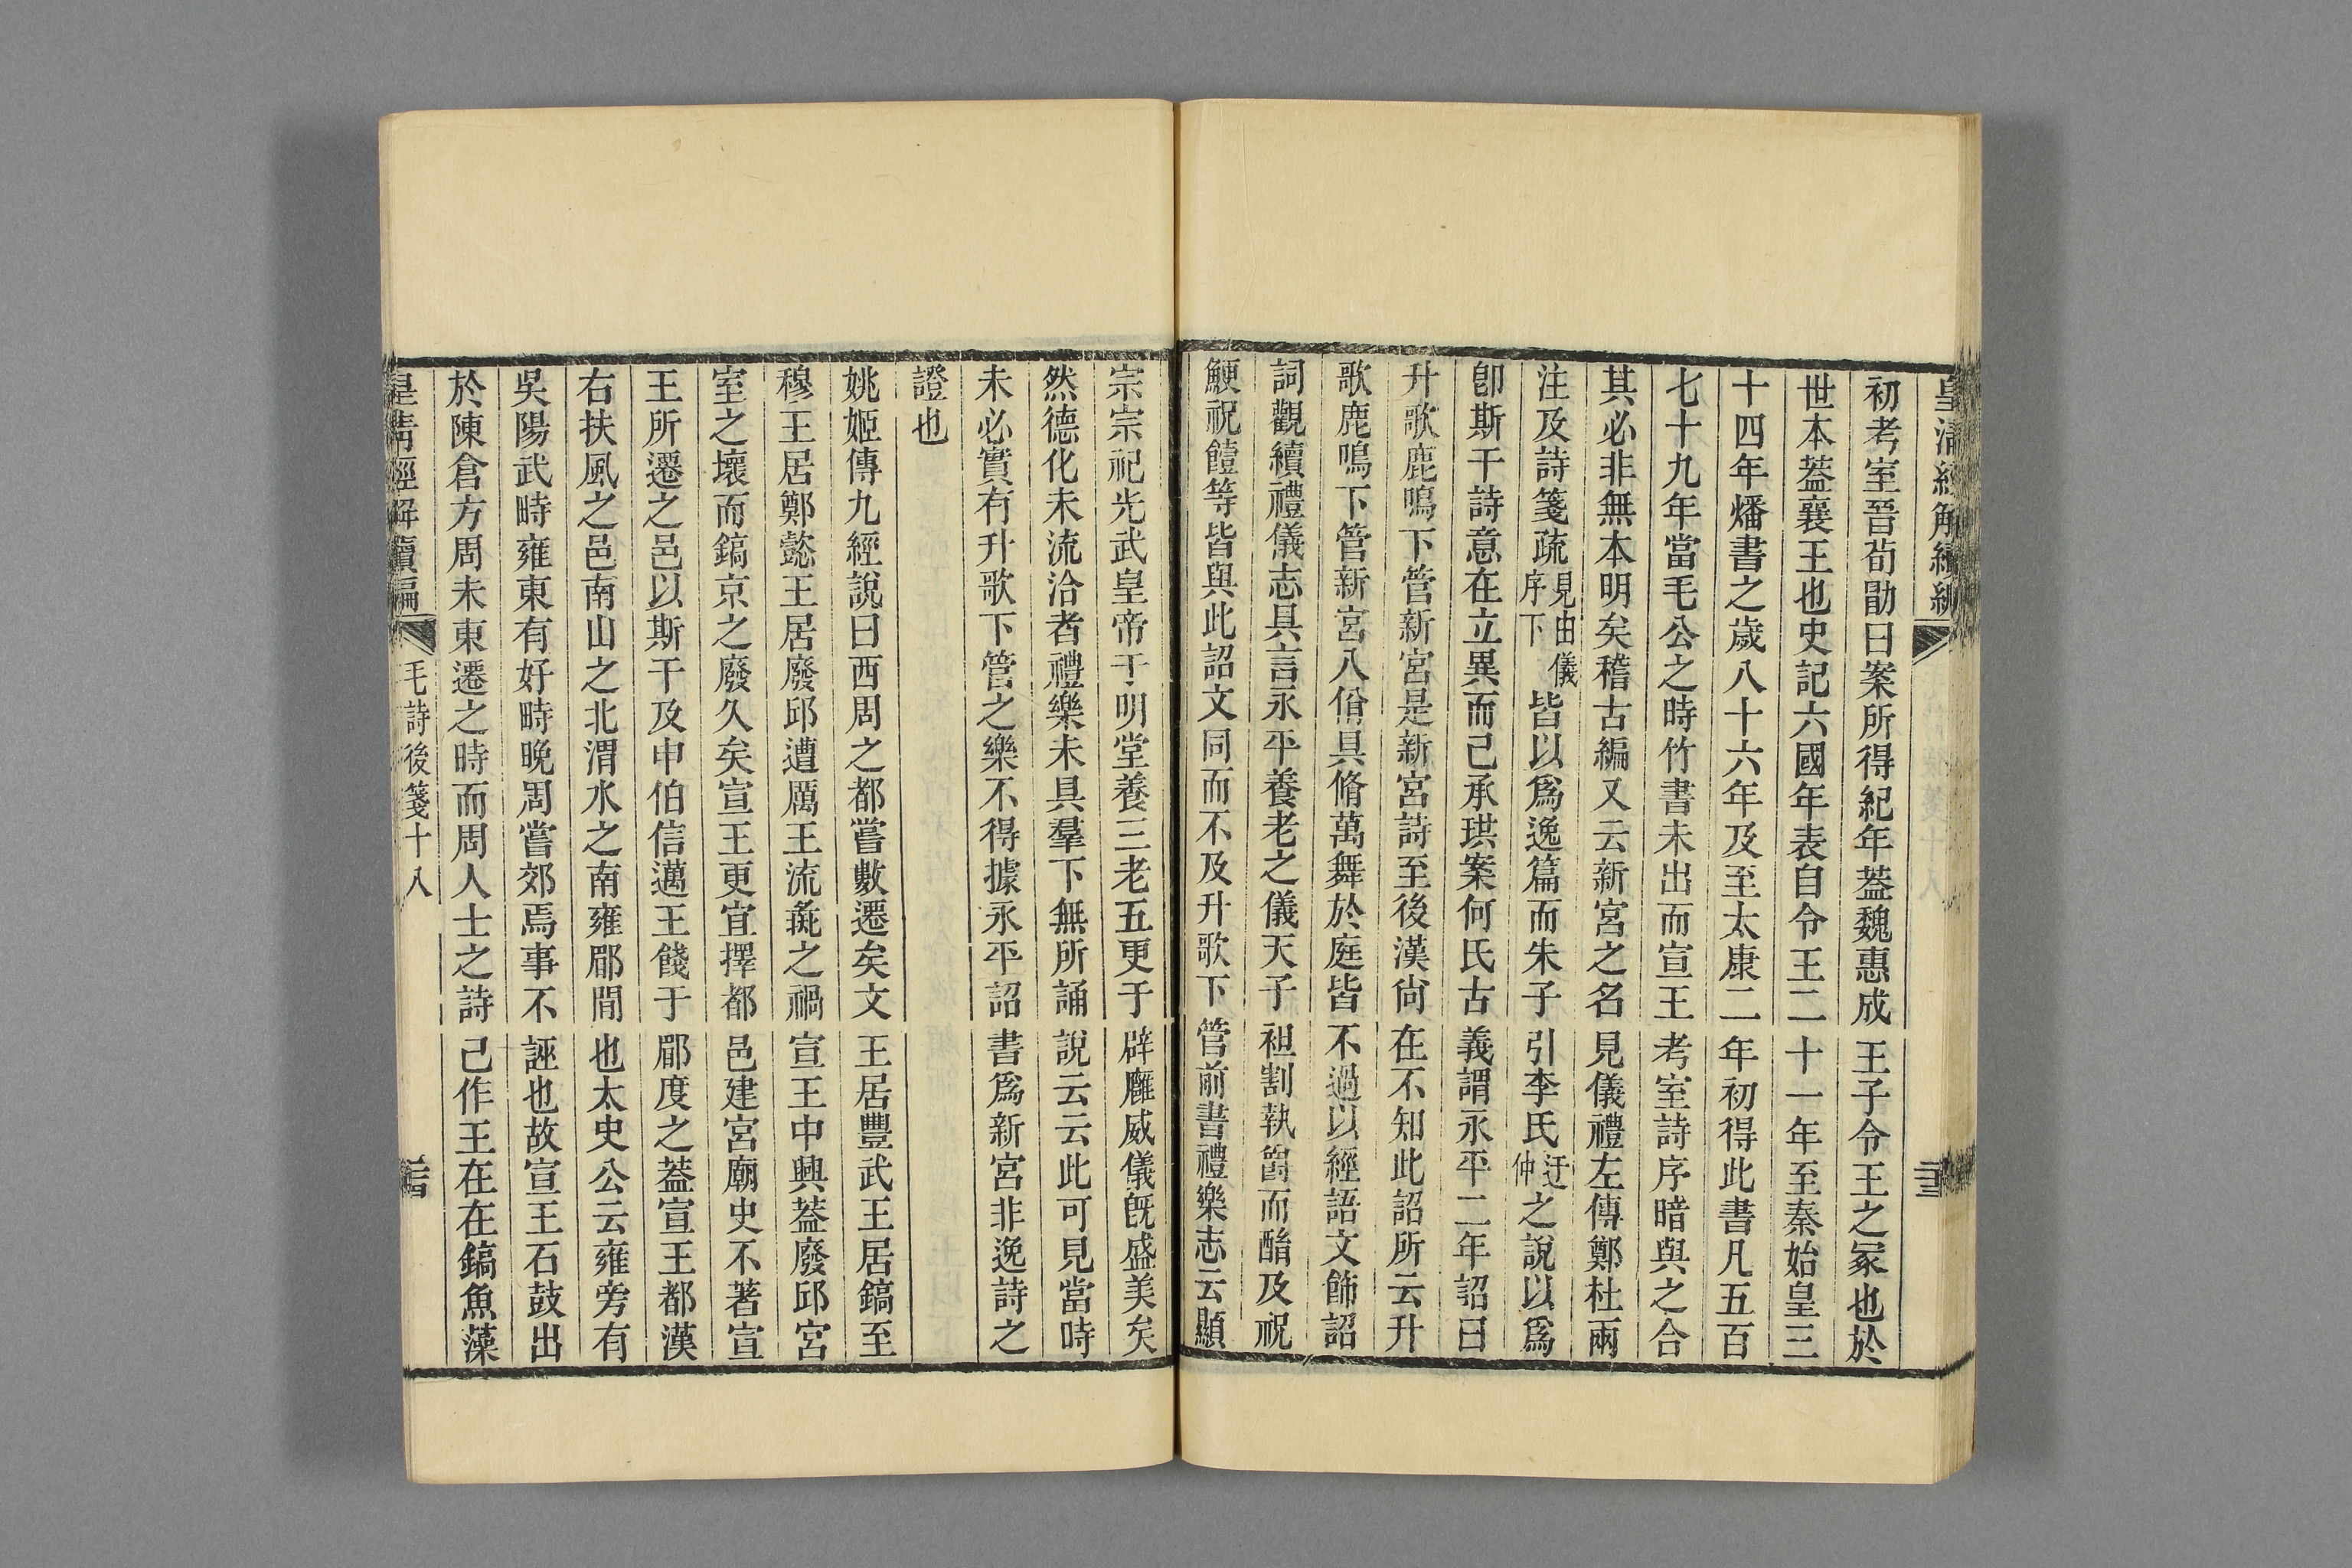 皇清經解續編
初考室晉荀勖曰案所得紀年葢魏惠成王子令王之冢也於
世本葢襄王也史記六國年表自令王二十一年至秦始皇三
十四年燔書之歲八十六年及至太康二年初得此書凡五百
七十九年當毛公之時竹書未出而宣王考室詩序暗與之合
其必非無本明矣稽古編又云新宮之名見儀禮左傳鄭杜兩
注及詩箋疏見由儀序下皆以爲逸篇而朱子引李氏迂仲之說以爲
卽斯干詩意在立異而已承珙案何氏古義謂永平二年詔曰
升歌鹿鳴下管新宮是新宮詩至後漢尙在不知此詔所云升
歌鹿鳴下管新宮八佾具脩萬舞於庭皆不過以經語文飾詔
詞觀續禮儀志具言永平養老之儀天子袒割執爵而酳及祝
鯁祝饐等皆與此詔文同而不及升歌下管前書禮樂志云顯
宗宗祀光武皇帝于明堂養三老五更于辟廱威儀旣盛美矣
然德化未流洽者禮樂未具羣下無所誦說云云此可見當時
未必實有升歌下管之樂不得據永平詔書爲新宮非逸詩之
證也
姚姬傳九經說曰西周之都嘗數遷矣文王居豐武王居鎬至
穆王居鄭懿王居廢邱遭厲王流彘之禍宣王中興葢廢邱宮
室之壞而鎬京之廢久矣宣王更宜擇都邑建宮廟史不著宣
王所遷之邑以斯干及申伯信邁王餞于郿度之葢宣王都漢
右扶風之邑南山之北渭水之南雍郿間也太史公云雍旁有
吳陽武畤雍東有好畤晚周嘗郊焉事不誣也故宣王石鼓出
於陳倉方周未東遷之時而周人士之詩己作王在在鎬魚藻
皇清經解續編 毛詩後箋十八